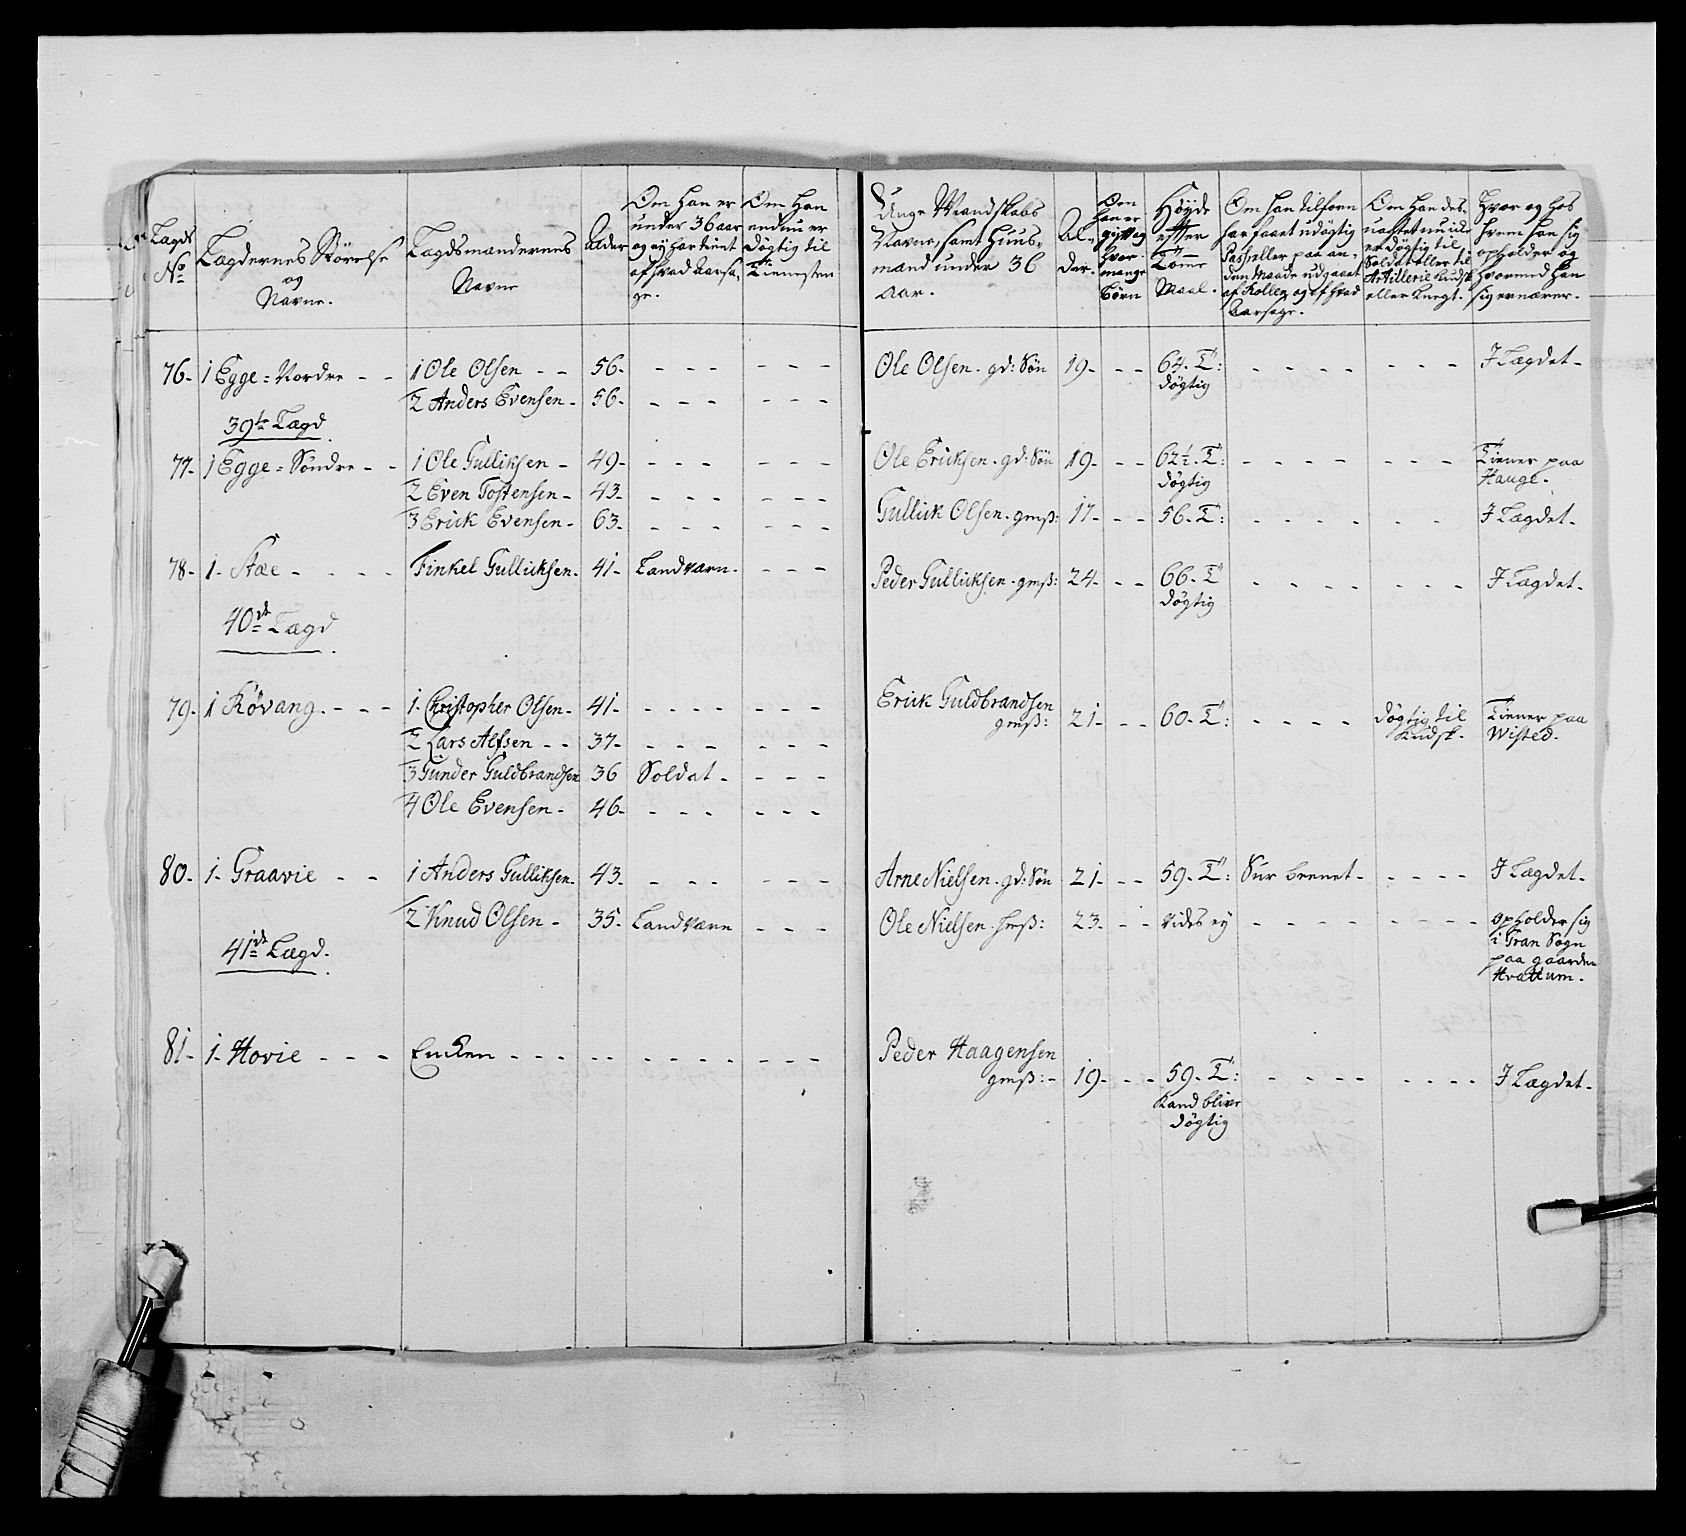 Lægds No
Lægdernes Störelse og Navne.
Lægdsmændernes Navne
Alder
Om han er under 36 aar og ey har tient af hvad Aarsage.
Om han endnu er døgtig til Tienesten
Unge Mandskabs Navne, samt Huusmænd under 36 Aar.
Alder.
Om han er gift og hvor mange Börn
Høyde effter Tomme Maal.
Om han tilforn har faaet udögtig Pass, eller paa anden Maade udgaaet af Rollen og af hvad Aarsage.
Om han des uagtet nu er døgtig til Soldat eller til Artillerie Kudsk eller Knegt.
Hvor og hos hvem han sig opholder og hvormed han sig ernærer.
76- 1 Egge-Nordre - - 1 Ole Olsen - - 56- - - - - - - Ole Olsen. gd: Søn 19- - - 64. T: - - - - - - - I Lægdet-
døgtig
2 Anders Evensen- 56- - - - - - -
39te Lægd
77- 1 Egge-Søndre - - 1 Ole Gulliksen - 49- - - - - - - Ole Ericksen. gd: Søn 19- - - 62½. T: - - - - - - - Tiener paa
døgtig Hauge.
2 Even Tostensen- 43- - - - - - -
Gullick Olsen. gmß: 17- - - 56. T: - - - - - - I Lægdet-
3 Erick Evensen- 63- - - - - - -
78- 1- Stæe - - - - Finkel Gullicksen. 41- Landværn. - - - Peder Gullicksen. gmß: 24- - - 66. T - - - - - - - I Lægdet-
døgtig
40de Lægd
79- 1 Røvang. - - - 1. Christopher Olsen- 41- - - - - - - - Erick Guldbrandsen
gmß: 21- - - 60. T: - - - - døgtig til Tiener paa
Kudsk. Wisted.
2 Lars Alfsen - - 37- - - - - - -
3 Gunder Guldbrandsen 36 Soldat - - - -
4 Ole Evensen - 46- - - - - - -
80- 1- Graavie - - 1 Anders Gulliksen- 43- - - - - - - Arne Nielsen. gd: Søn 21- - - 59. T: Sur beenet- - - - - I Lægdet-
2 Knud Olsen - 35- Landværn - - - Ole Nielsen. hmß: 23- - - Vides ey - - - - - - - - opholder sig
i Gran Sogn
paa gaarden
Hvattum.
41de Lægd.
81- 1- Hovie - - - Encken - - - - - - - - - - - - Peder Haagensen
gmß:- 19- - - 59. T: - - - - - - - - I Lægdet-
Kand blive
døgtig